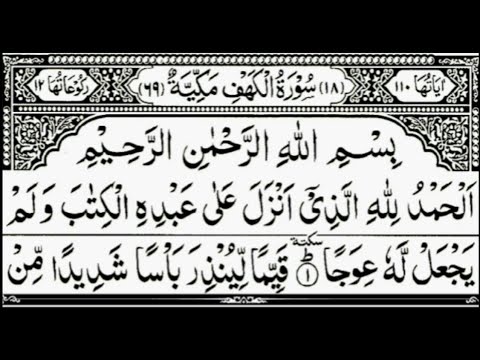 اٰيَاتُهَا ١١٠ (١٨) سُوْرَةُ الْكَهْفِ مَكِّيَّةٌ (٦٩) رُكُوْعَاتُهَا ١٢
بِسْمِ اللهِ الرَّحْمٰنِ الرَّحِيْمِ
اَلْحَمْدُ لِلّٰهِ الَّذِيْۤ اَنْزَلَ عَلٰى عَبْدِهِ الْكِتٰبَ وَلَمْ
يَجْعَلْ لَّهٗ عِوَجًا ؕ سكتة ١ قَيِّمًا لِّيُنْذِرَ بَاْسًا شَدِيْدًا مِّنْ